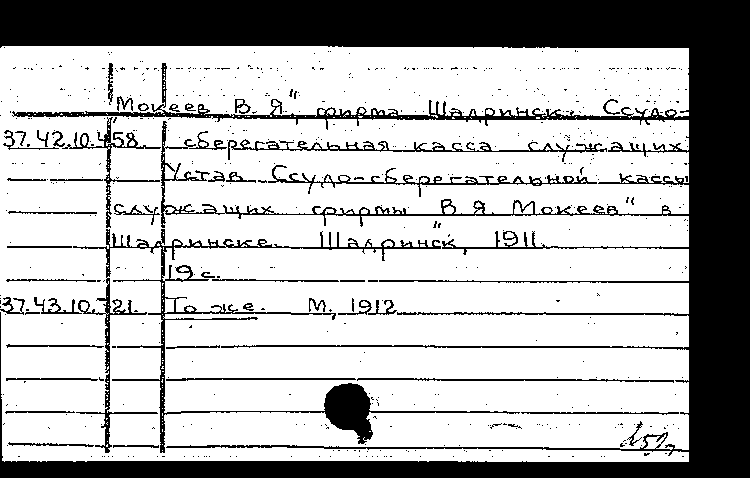 "Мокеев, В. Я", фирма Шадринск. Ссудо-
37.42.10.458. сберегательная касса служащих
Устав Ссудо-сберегательной кассы
служащих фирмы "В. Я. Мокеев" в
Шадринске. Шадринск, 1911.
19 с.
37.43.10.721. То же. М., 1912